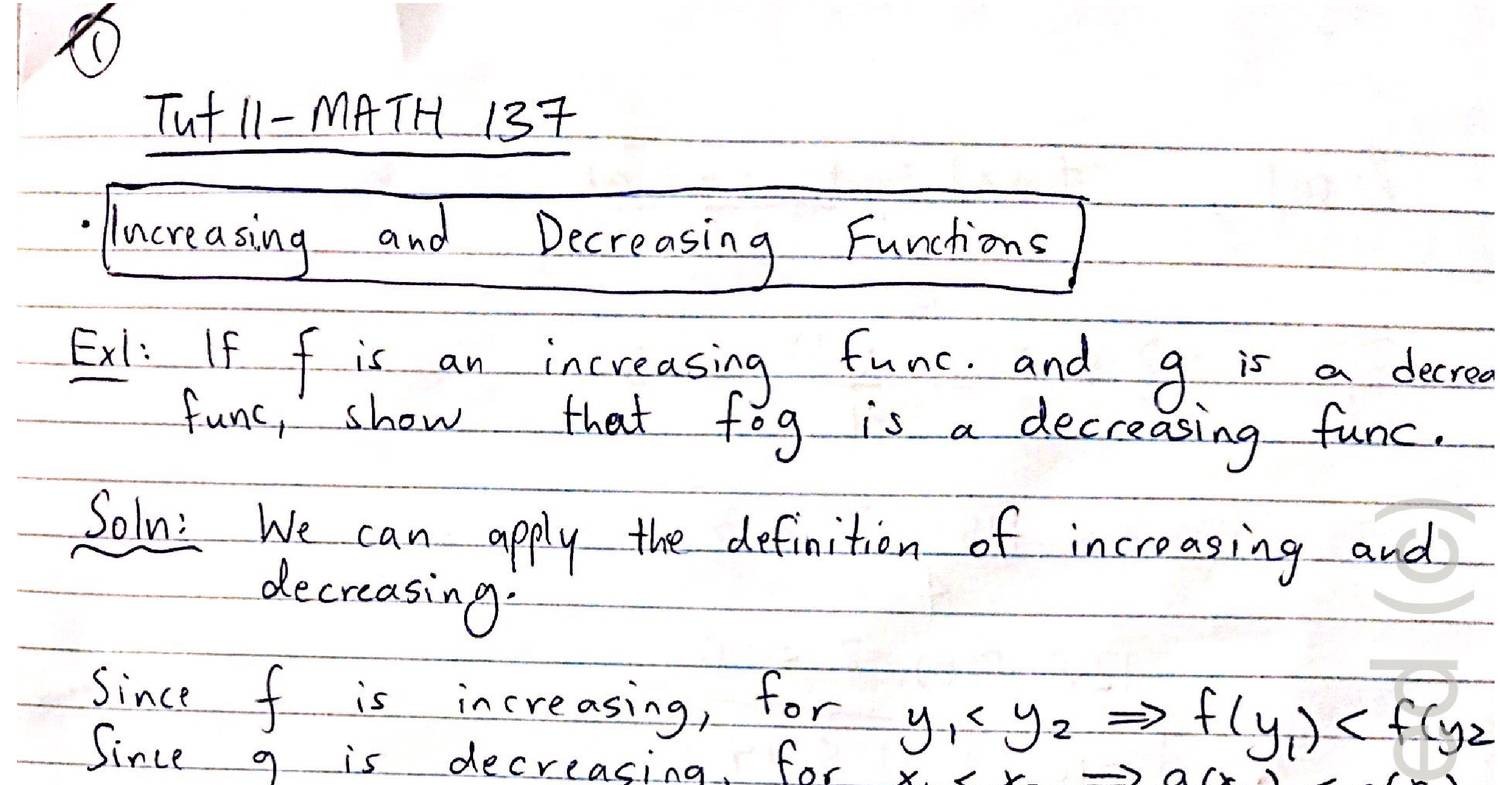 ①
Tut 11 - MATH 137
• Increasing and Decreasing Functions
Ex1: If f is an increasing func. and g is a decrea
func, show that fog is a decreasing func.
Soln: We can apply the definition of increasing and
decreasing.
Since f is increasing, for y₁ < y₂ ⇒ f(y₁) < f(y₂
Since g is decreasing, for x₁ < x₂ ⇒ g(x₁)